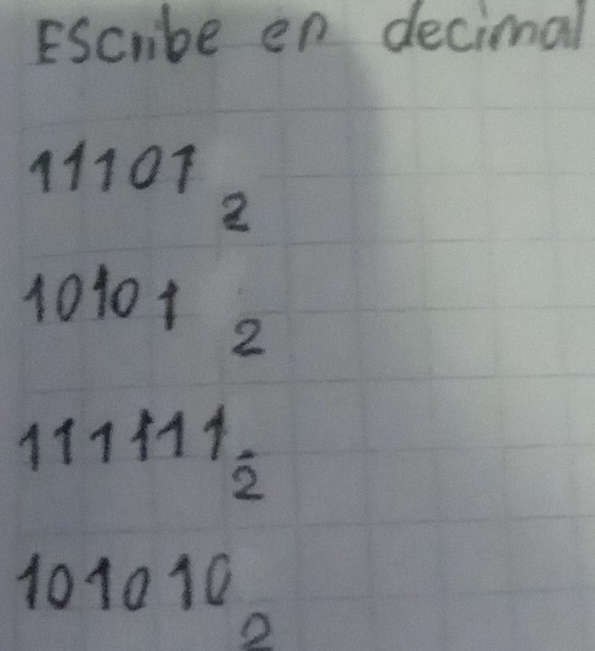 Escribe en decimal
11101₂
10101₂
111111₂
101010₂